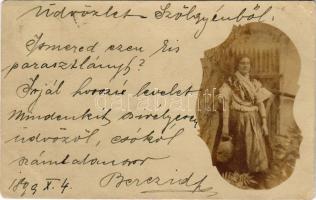 Üdvözlet Szőlgyénből.
Ismered ezen kis
parasztlányt?
Írjál hosszú levelet
Mindenkit szívélyesen
üdvözöl, csókol
számtalanszor
1899 X. 4.
darabanth.com